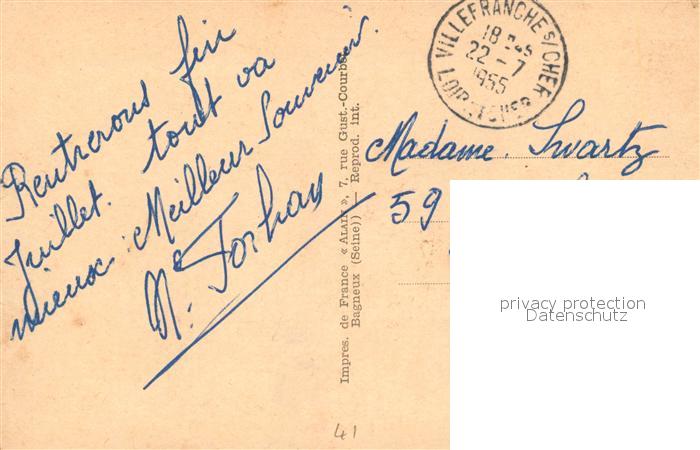 Rentrerons fin
Juillet. tout va
mieux. Meilleur Souvenir.
Impres. de France « ALAIN », 7, rue Gust.-Courbet
Bagneux (Seine)) — Reprod. int.
VILLEFRANCHE S/CHER
18 H45
22 - 7
1955
LOIR-ET-CHER
Madame Swartz
59
privacy protection
Datenschutz
41